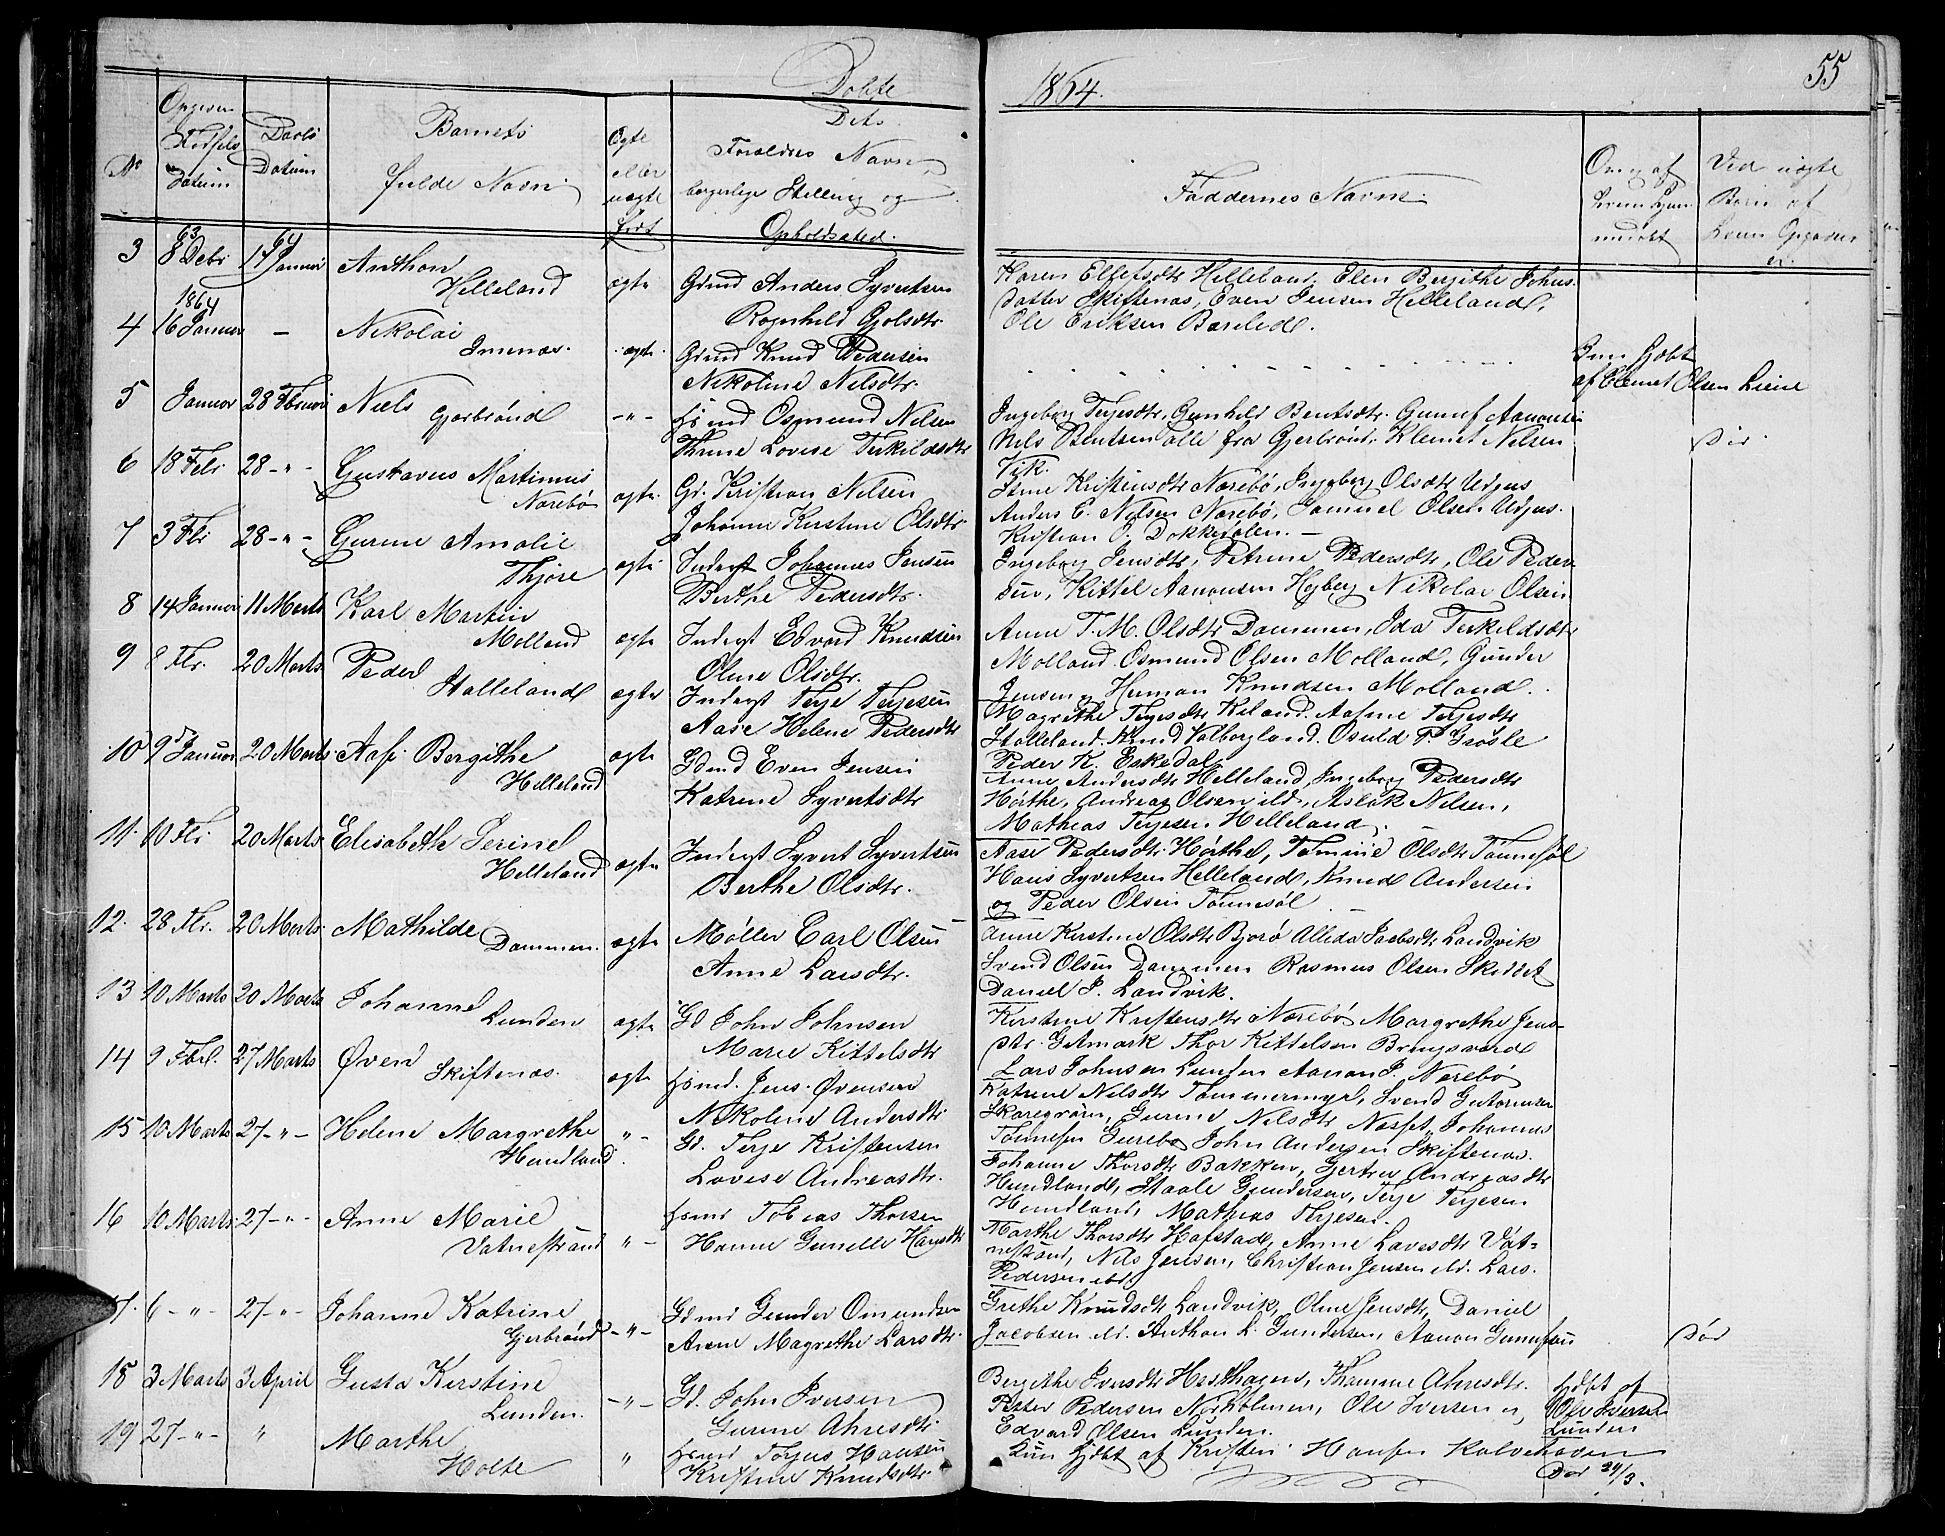 Døbte
1864.
55
No
Opgiven Fødsels Datum
Daabs Datum
Barnets fulde Navn
Ægte eller uægte født
Dets Forældres Navn borgerlige Stilling og Opholdssted.
Faddernes Navne
Om og af hvem hjemmedøbt
Ved uægte Børn af hvem Opgivne er.
3 63 8 Debr 64 17 Januar Anthon Helleland ægte Gmd Anders Syvertsen
Ragnhild Gjolsdtr
Karen Ellefsdtr Helleland, Elen Bergithe Johns
datter Skiftenas, Even Jensen Helleland,
Ole Eriksen Barelid.
4 1864 16 Januar - Nikolai Imenæs. ægte Gdmd Knud Pedersen
Nikoline Nilsdtr.
Kun hjdbt
af Clemet Olsen Liene
5 Januar 28 Februar Niels Gjerbrønd -"- Hsmd Osmund Nilsen
Thrine Lovise Terkildsdtr
Ingeborg Terjesdtr, Gunhild Bentsdtr. Gunuf Aanonsen
Nils Bentsen alle fra Gjerbrønd. Klemet Nilsen
Vik.
Dør.
6 18 Febr 28 -"- Gustavus Martinius Norebø ægte. Gd. Kristian Nilsen
Johanne Kirstine Olsdtr.
Stine Kristensdtr Norebø, Ingeborg Olsdtr Udjus
Anders E. Nilsen Norebø, Samuel Olsen Udjus.
Kristian O. Dokkedalen. -
7 3 Febr 28 -"- Gurine Amalie Thjøre ægte Inderst Johannes Jensen
Berthe Pedersdtr.
Ingeborg Jensdtr, Petrine Pedersdtr, Ole Peder
sen, Kittel Aanonsen Høyberg Nikolai Olsen
8 14 Januar 11 Marts Karl Martin Molland ægte Inderst Edvard Knudsen
Oline Olsdtr.
Anne T. M. Olsdtr Dammen, Ida Terkildsdtr
Molland. Osmund Olsen Molland, Gunder
Jensen, Herman Knudsen Molland.
9 8 Fbr. 20 Marts Peder Halleland ægte Inderst Terje Terjesen
Aase Helene Pedersdtr
Magrethe Terjesdtr Keland. Aasine Terjesdtr
Halleland. Knud Valborgland. Osuld T. Grøsle
Peder K. Eskedal
10 9 Januar 20 Marts Aase Bergithe Helleland ægte Gdmd Even Jensen
Katrine Syvertsdtr
Anne Andersdtr Helleland, Ingeborg Pedersdtr
Hørthe, Andreas Olsen ibd, Aslak Nilsen,
Mathias Terjesen Helleland.
11. 10 Fbr 20 Marts Elisabeth Serine Helleland ægte Inderst Syvert Syvertsen
Berthe Olsdtr.
Aase Pedersdtr Hørthe, Tomine Olsdtr Tønnesøl
Hans Syvertsen Helleland, Knud Andersen
og Peder Olsen Tønnesøl
12. 28 Fbr. 20 Marts. Mathilde Dammen. ægte Møller Carl Olsen
Anne Larsdtr.
Anne Kirstine Olsdtr Bjorø Allida Jacbsdtr Landvik
Svend Olsen Dammen Rasmus Olsen Skibbek
Daniel J. Landvik.
13 10 Marts 20 Marts Johanne Lunden ægte Gd John Johnsen
Marie Kittelsdtr
Kirstine Kristensdtr Norebø Margrethe Jens-
dtr. Gitmark Thor Kittelsen Bringsværd
Lars Johnsen Lunden Aanon J. Norebø
14 9 Fbr. 27 Marts Øven Skiftenæs. ægte Hsmd. Jens Øvensen
Nikoline Andersdtr
Katrine Nilsdtr Tømmermyr, Svend Gutormsen
Skaregrøm, Gurine Nilsdtr Næsset, Johannes
Tønnesen Gurebo John Andersen Skiftenæs.
15 10 Marts 27 -"- Helene Margrethe Hundland. "- Gd. Terje Kristensen
Lovise Andreasdtr.
Johanne Thorsdtr Bakken, Gjertru Andreasdtr
Hundland, Staale Gundersen, Terje Terjesen
Hundland, Mathias Terjesen.
16 10 Marts 27 -"- Anne Marie Vatnestrand "- Hsmd Tobias Thorsen
Hanne Gunelle Hansdtr
Marthe Thorsdtr Hafstad, Anne Lavesdtr Vat-
nestrand, Nils Jensen, Christian Jensen ibd. Lars.
Pedersen ibd.
17. 6 -"- 27 -"- Johanne Katrine Gjerbrønd -"- Gdmd Gunder Omundsen
Anne Magrethe Larsdtr.
Grethe Knudsdtr Landvik, Oline Jensdtr, Daniel
Jacobsen ibd. Anthon L. Gundersen, Aanon Gunufsen
Dør
18 3 Marts 3 April Gusta Kirstine Lunden. -"- Gd. John Iversen
Gurine Ahresdtr
Bergithe Iversdtr Hesthagen, Thomine Ahresdtr.
Peter Pedersen Norholmen, Ole Iversen og
Edvard Olsen Lunden.
hjdbt af
Ole Iversen
Lunden
19 27 -"- " Marthe Holte " Hsmd Torjus Hansen
Kristine Knudsdtr.
Kun hjdbt af Kristen Hansen Kalvehaven
Dør 29/3.